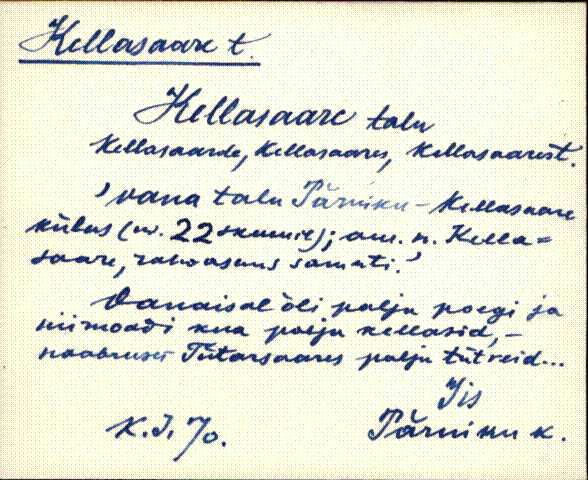 Kellasaare t.
Kellasaare talu
Kellasaarde, Kellasaares, Kellasaarest.
'vana talu Pärniku-Kellasaare
külas (nr. 22 skeemil); am. n. Kella=
saare, rahvasuus samuti.'
Vanaisal òli palju poegi ja
niimoodi kua palju kellasid, -
naabruses Tütarsaares palju tütreid...
Iis
K. I. 70. Pärniku k.